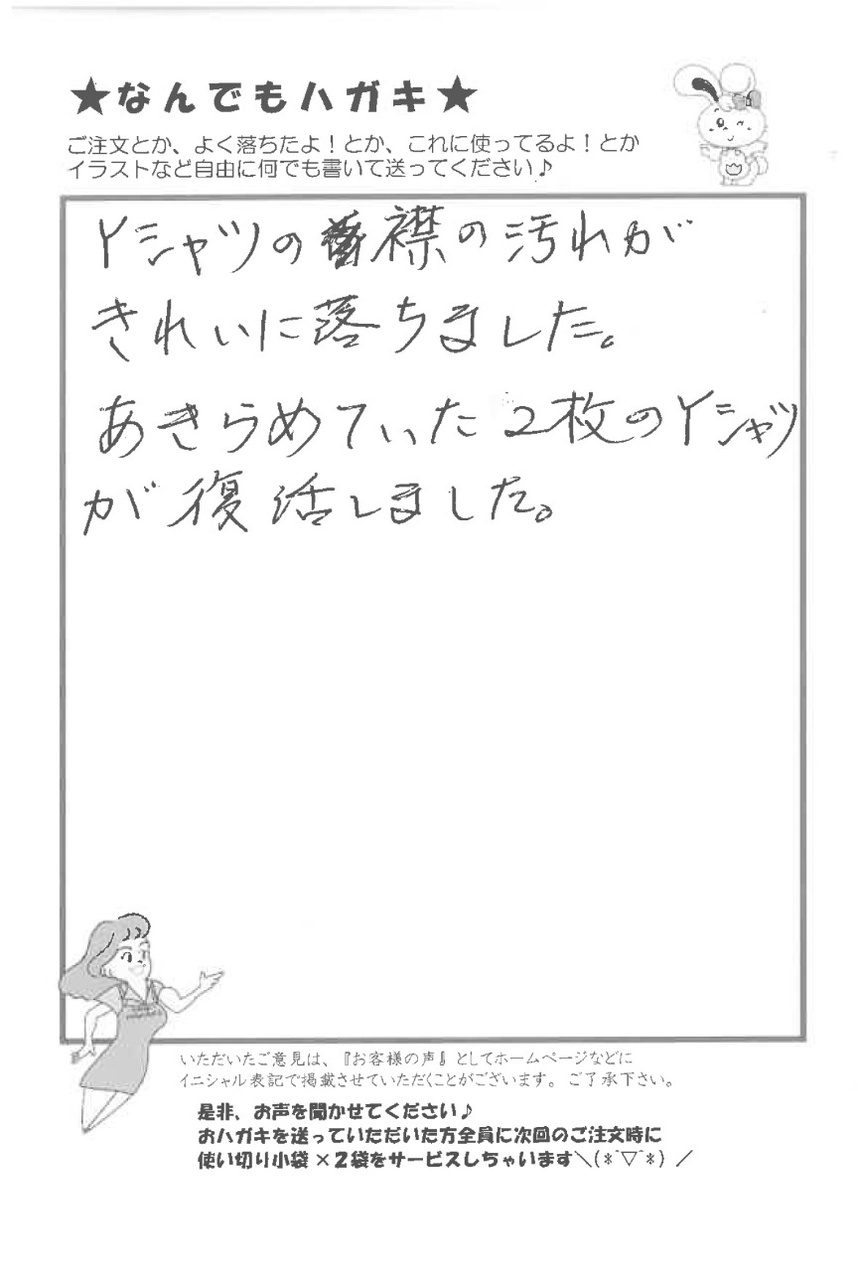 ★なんでもハガキ★
ご注文とか、よく落ちたよ！とか、これに使ってるよ！とか
イラストなど自由に何でも書いて送ってください♪
Yシャツの襟の汚れが
きれいに落ちました。
あきらめていた2枚のYシャツ
が復活しました。
いただいたご意見は、『お客様の声』としてホームページなどに
イニシャル表記で掲載させていただくことがございます。ご了承下さい。
是非、お声を聞かせてください♪
おハガキを送っていただいた方全員に次回のご注文時に
使い切り小袋×2袋をサービスしちゃいます＼(*^▽^*)／